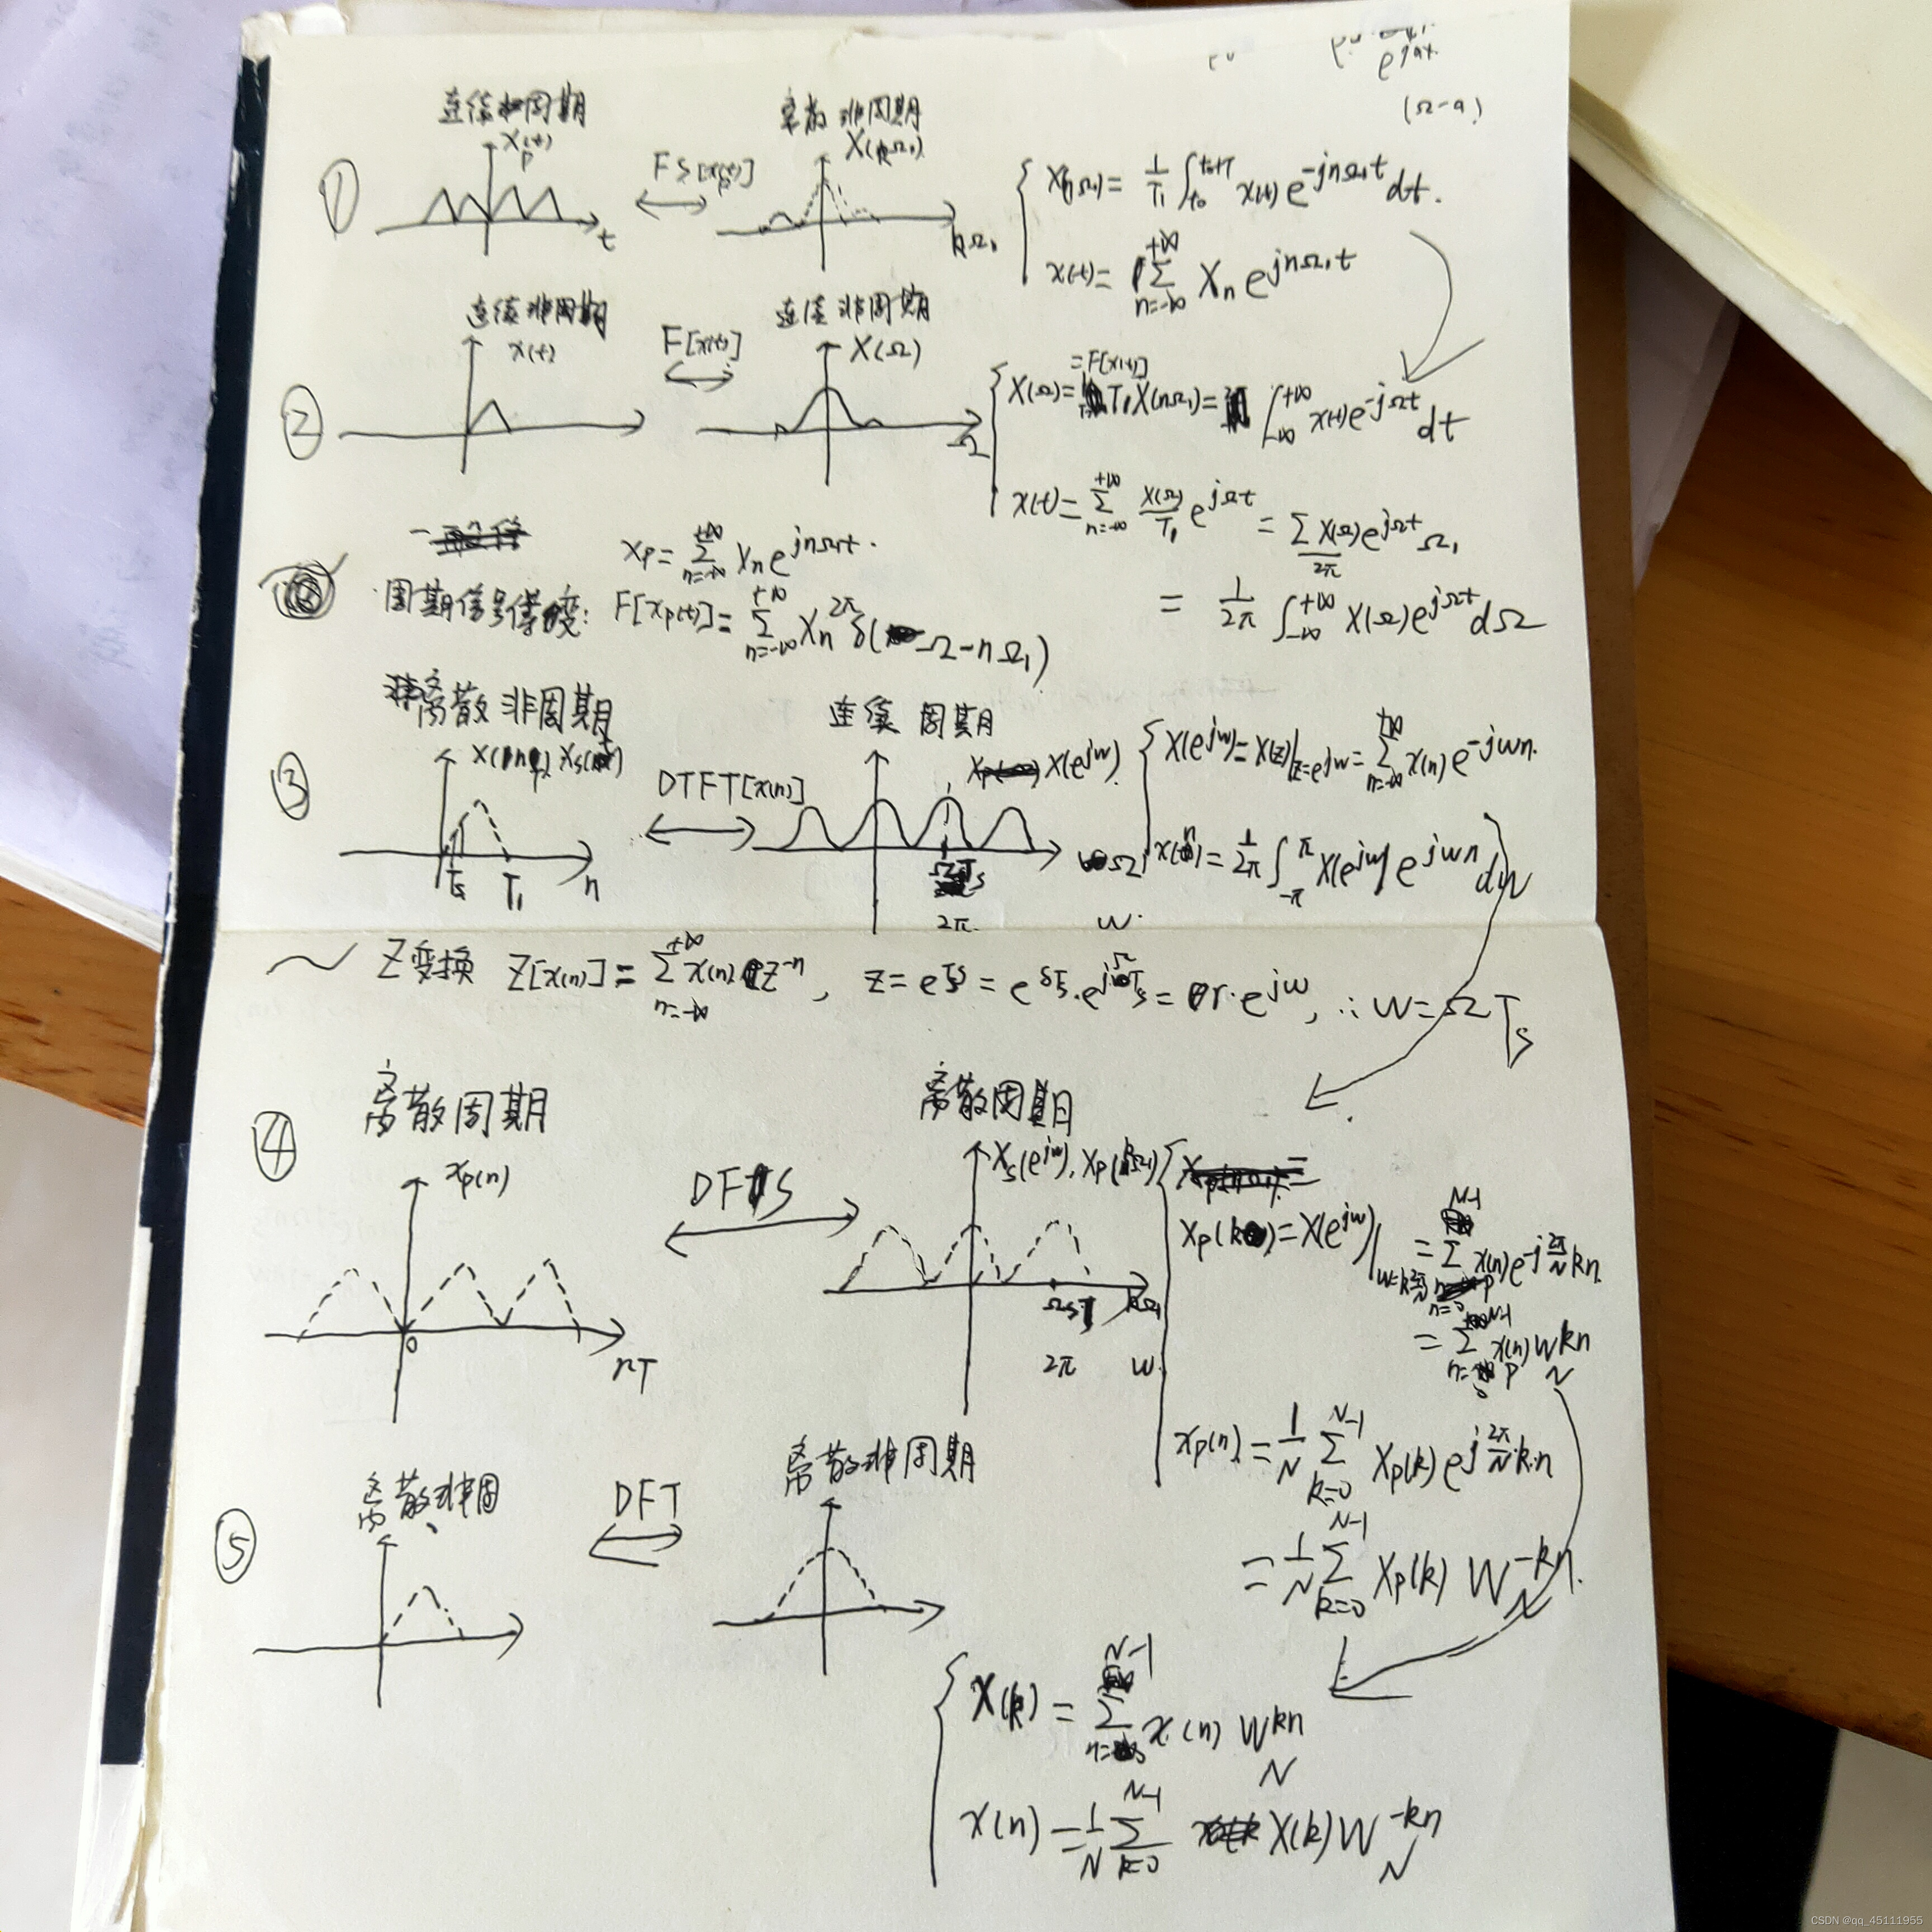 e^{jat}
(Ω-a)
连续周期 离散 非周期
① x_p(t) FS[x_p(t)] X(kΩ₁)
t kΩ₁
X(nΩ₁) = 1/T₁ ∫_{t₀}^{t₀+T} x(t) e^{-jnΩ₁t} dt.
x(t) = ∑_{n=-∞}^{+∞} X_n e^{jnΩ₁t}
连续 非周期 连续 非周期
② x(t) F[x(t)] X(Ω)
Ω
=F[x(t)]
X(Ω) = T₁X(nΩ₁) = ∫_{-∞}^{+∞} x(t) e^{-jΩt} dt
x(t) = ∑_{n=-∞}^{+∞} X(Ω)/T₁ e^{jΩt} = ∑ X(Ω)e^{jΩt}/2π Ω₁
= 1/2π ∫_{-∞}^{+∞} X(Ω) e^{jΩt} dΩ
x_p = ∑_{n=-∞}^{+∞} X_n e^{jnΩ₁t}.
周期信号傅变: F[x_p(t)] = ∑_{n=-∞}^{+∞} X_n 2π δ(Ω-nΩ₁)
离散 非周期 连续 周期
③ DTFT[x(n)] X(e^{jw})
Ts T₁ n
2π Ω w
X(e^{jw}) = X(z)|_{z=e^{jw}} = ∑_{n=-∞}^{+∞} x(n) e^{-jwn}.
x(n) = 1/2π ∫_{-π}^{π} X(e^{jw}) e^{jwn} dw
~ Z变换 Z[x(n)] = ∑_{n=-∞}^{+∞} x(n) z^{-n}, z = e^{Ts} = e^{δTs}·e^{jΩTs} = r·e^{jw}, ∴ w = ΩTs
离散周期 离散周期
④ x_p(n) DFS X_s(e^{jw}), X_p(kΩ₁)
0 nT Ωs kΩ₁
2π w
X_p(k) = X(e^{jw})|_{w=k 2π/N} = ∑_{n=0}^{N-1} x_p(n) e^{-j 2π/N kn}.
= ∑_{n=0}^{N-1} x_p(n) W_N^{kn}
x_p(n) = 1/N ∑_{k=0}^{N-1} X_p(k) e^{j 2π/N k·n}
= 1/N ∑_{k=0}^{N-1} X_p(k) W_N^{-kn}.
离散非周 离散非周期
⑤ DFT
X(k) = ∑_{n=0}^{N-1} x(n) W_N^{kn}
x(n) = 1/N ∑_{k=0}^{N-1} X(k) W_N^{-kn}
CSDN @qq_45111955